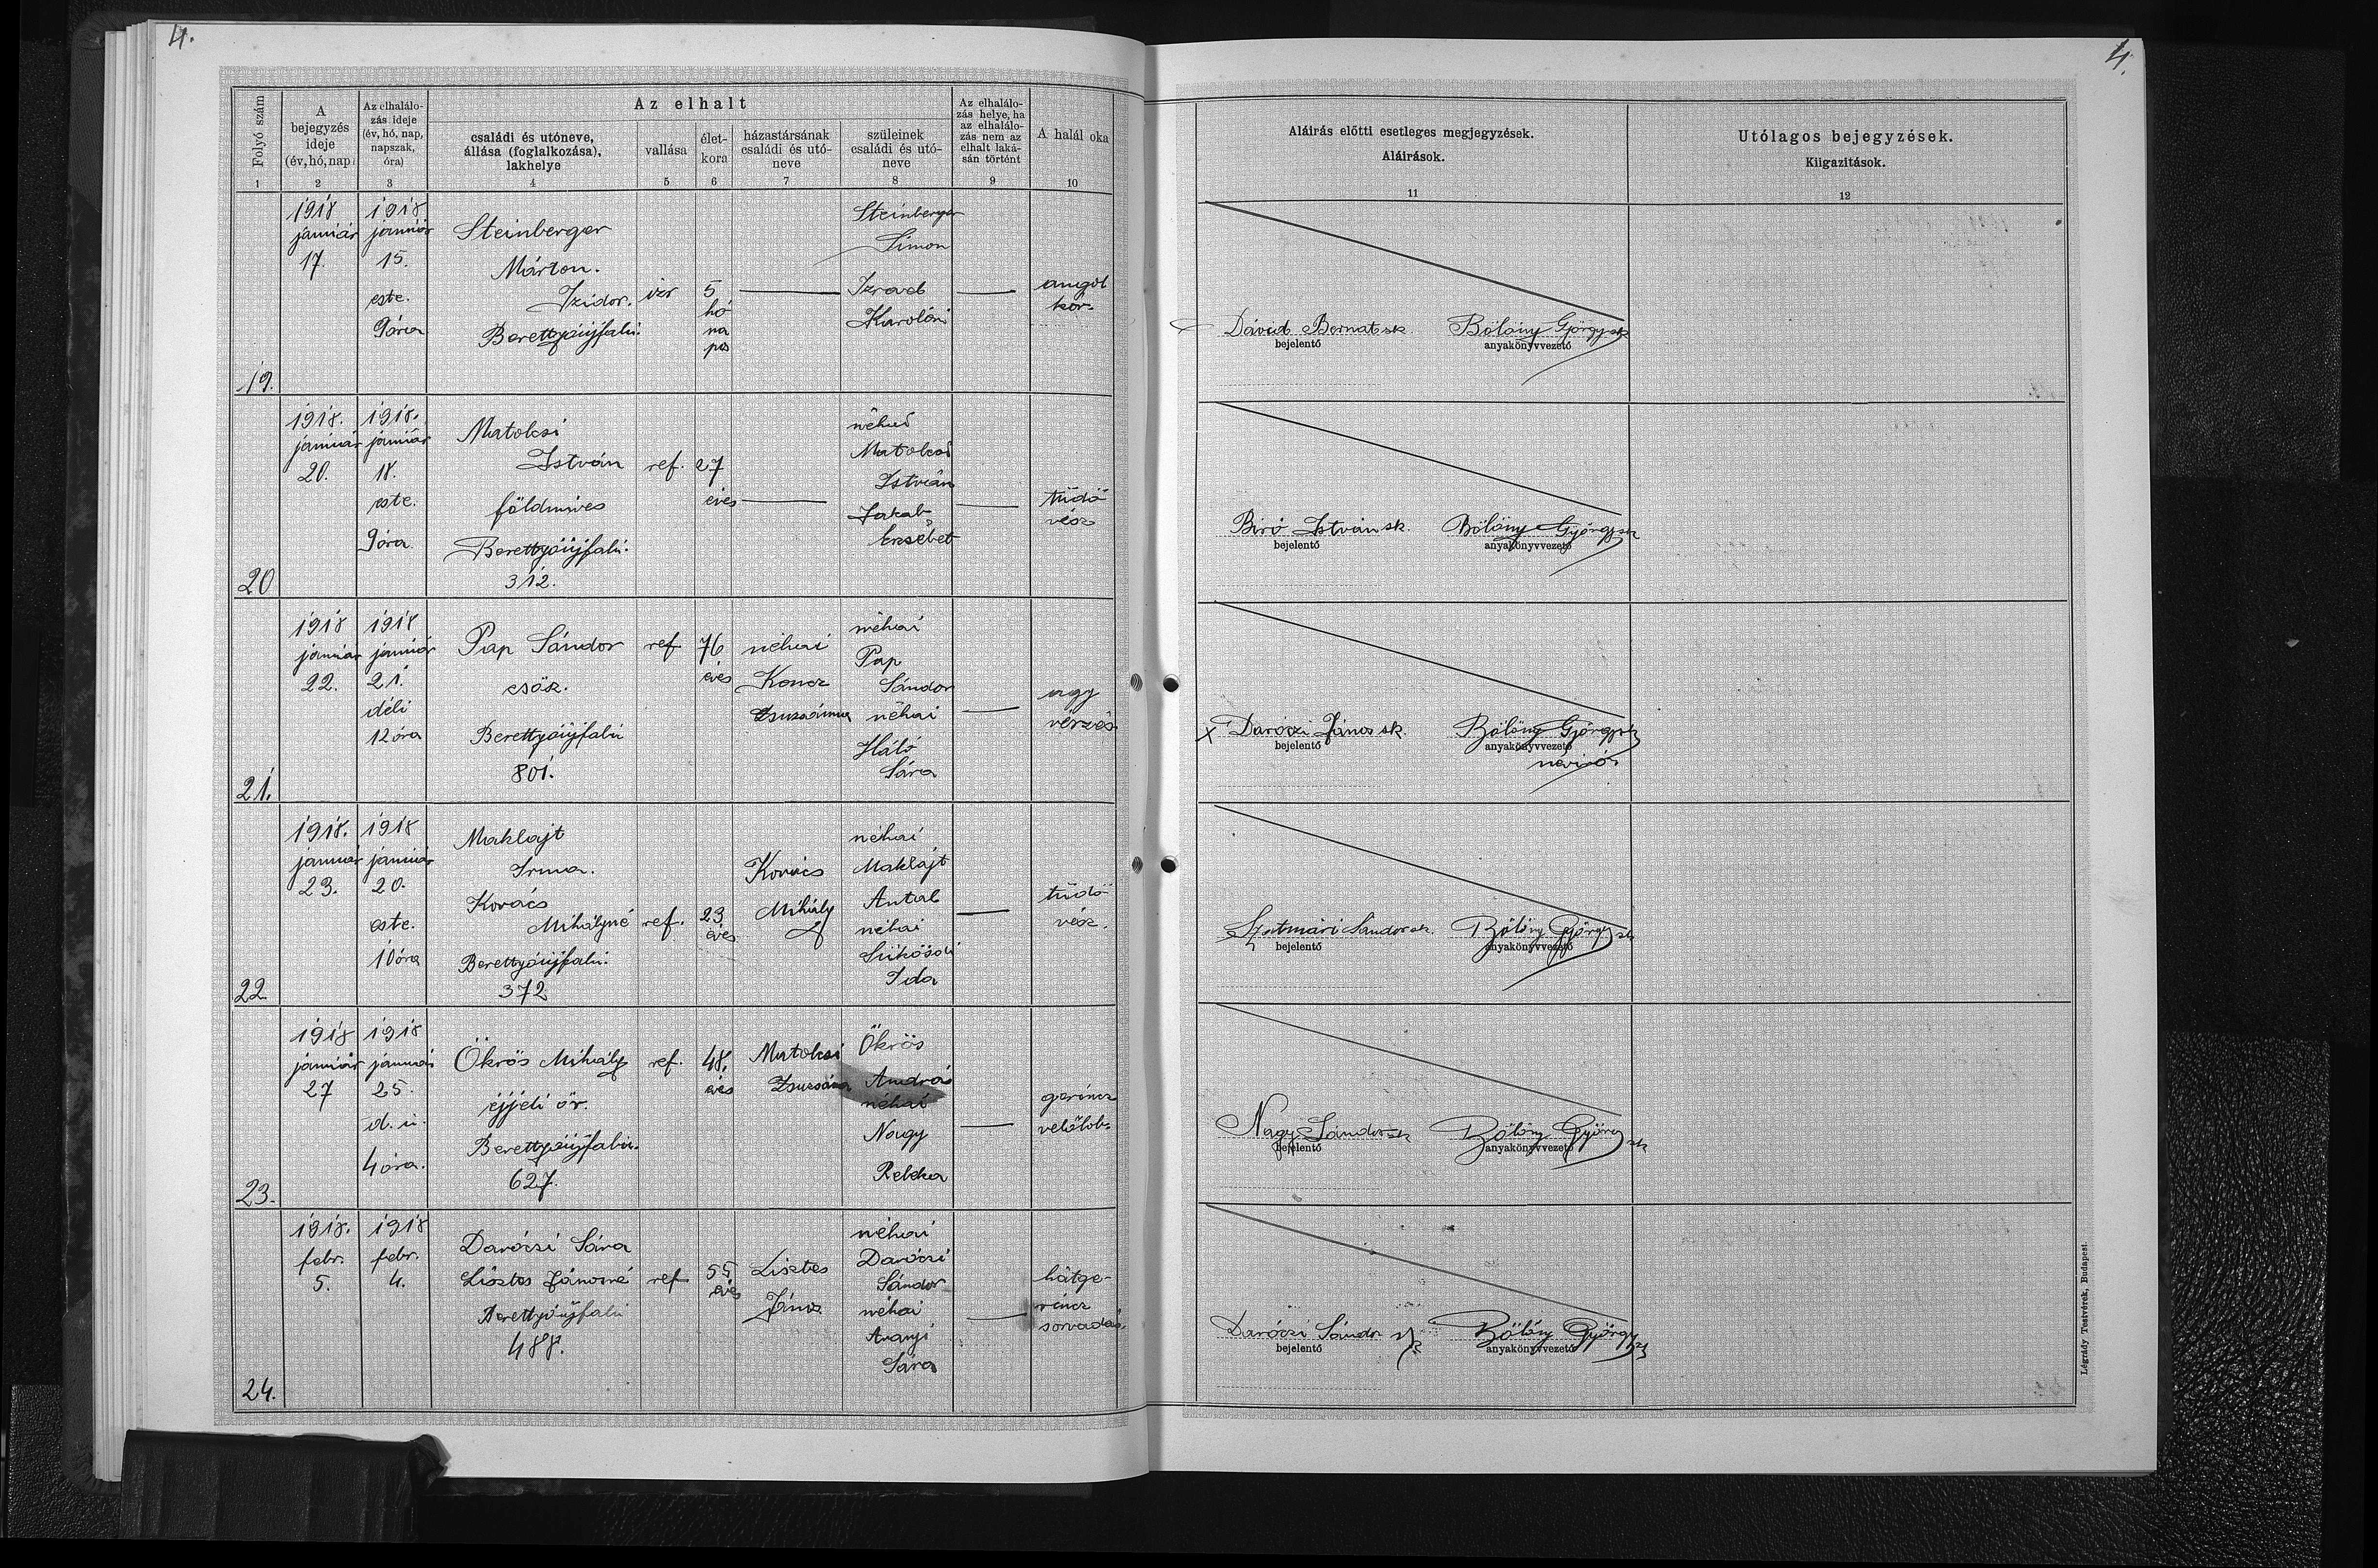 4.
4.
Folyó szám
A bejegyzés ideje (év, hó, nap)
Az elhalálozás ideje (év, hó, nap, napszak, óra)
Az elhalt
családi és utóneve, állása (foglalkozása), lakhelye
vallása
életkora
házastársának családi és utóneve
szüleinek családi és utóneve
Az elhalálozás helye, ha az elhalálozás nem az elhalt lakásán történt
A halál oka
1 2 3 4 5 6 7 8 9 10
Aláirás előtti esetleges megjegyzések.
Aláirások.
11
Utólagos bejegyzések.
Kiigazitások.
12
19.
1918 január 17.
1918 január 15. este. 9 óra
Steinberger
Márton.
Izidor.
Berettyóújfalu.
izr
5 hó na pos
Steinberger
Simon
Izrael
Karolin
angol kór
Dávid Bernat sk
bejelentő
Bölöny György sk
anyakönyvvezető
20
1918. január 20.
1918. január 18. este. 9 óra.
Matolcsi
István
földmives
Berettyóújfalu.
312.
ref.
27 éves
néhai
Matolcsi
István
Jakab
Erzsébet
tüdő vész
Biró István sk.
bejelentő
Bölöny György sk
anyakönyvvezető
21.
1918 január 22.
1918 január 21. déli 12 óra
Pap Sándor
csősz.
Berettyóújfalu
801.
ref
76 éves
néhai
Koncz
Zsuzsánna
néhai
Pap
Sándor
néhai
Háló
Sára
agy vérzés
Daróczi János sk.
bejelentő
Bölöny György sk
anyakönyvvezető
22
1918. január 23.
1918 január 20. este. 10 óra
Maklajt
Irma.
Kovács
Mihályné
Berettyóújfalu.
372
ref.
23 éves
Kovács
Mihály
néhai
Maklajt
Antal
néhai
Sükösdi
Ida
tüdő vész.
Szatmári Sándor sk.
bejelentő
Bölöny György sk
anyakönyvvezető
23.
1918 január 27
1918 január 25. d. u. 4 óra.
Ökrös Mihály
éjjeli őr.
Berettyóújfalu.
627.
ref.
48. éves
Matolcsi
Zsuzsána
Ökrös
András
néhai
Nagy
Rebeka
gerincz velőlob
Nagy Sándor sk
bejelentő
Bölöny György sk
anyakönyvvezető
24.
1918. febr. 5.
1918 febr. 4.
Daróczi Sára
Lisztes Jánosné
Berettyóújfalu
488.
ref
55 éves
Lisztes
János
néhai
Daróczi
Sándor
néhai
Aranyi
Sára
hátge-
rincz
sorvadás.
Daróczi Sándor sk
bejelentő
Bölöny György sk
anyakönyvvezető
Légrády Testvérek, Budapest.